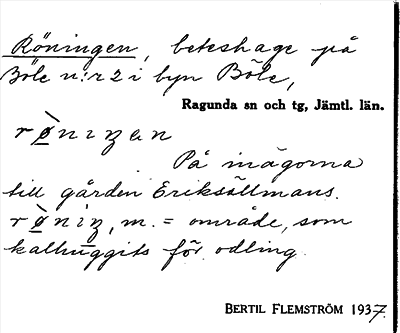 Röningen, beteshage på
Böle n:r 2 i byn Böle,
Ragunda sn och tg, Jämtl. län.
rø̀niŋen
På inägorna
till gården Eriksällmans.
rø̀niŋ, m. = område, som
kalhuggits för odling.
BERTIL FLEMSTRÖM 1937.